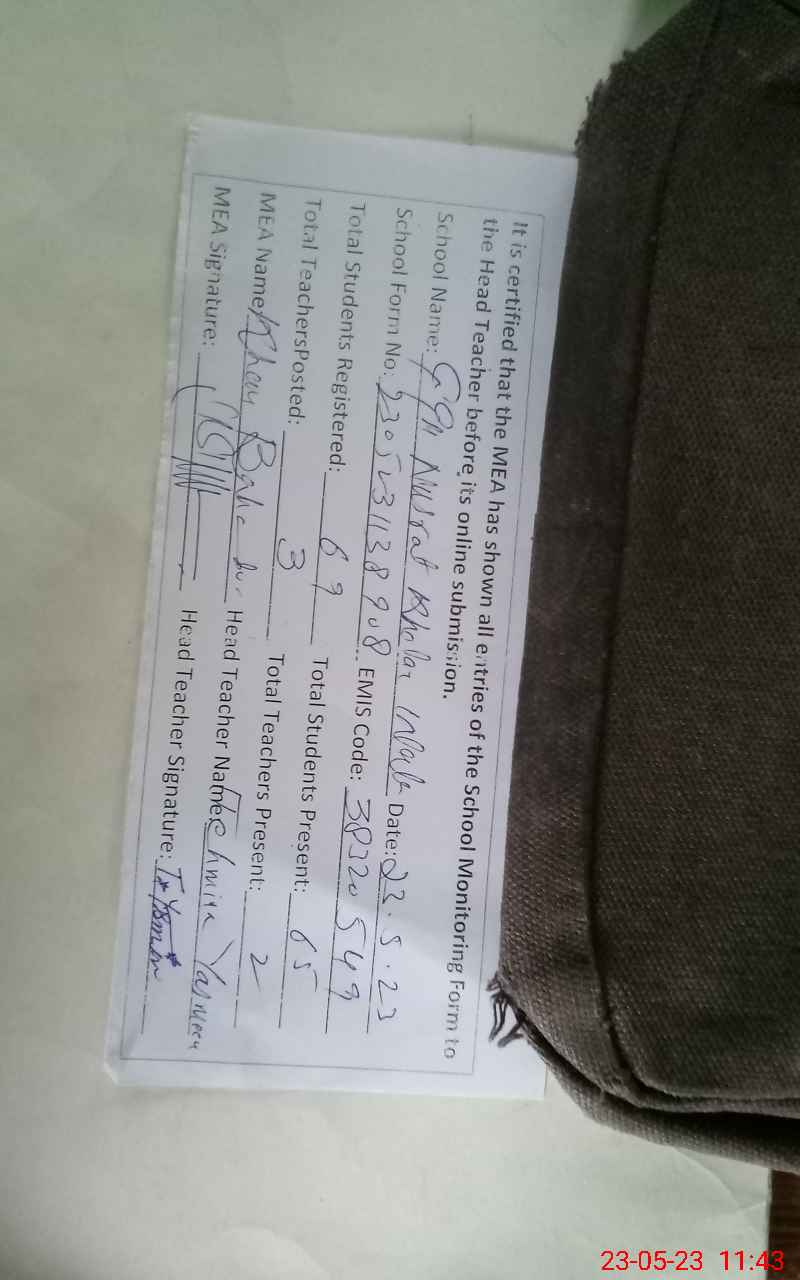 It is certified that the MEA has shown all entries of the School Monitoring Form to
the Head Teacher before its online submission.
School Name: Nusrat Date: 23.5.23
School Form No: 2305231138908 EMIS Code: 38320549
Total Students Registered: 69 Total Students Present: 65
Total TeachersPosted: 3 Total Teachers Present: 2
MEA Name: Khan Bahadur Head Teacher Name: Tehmina Yasmeen
MEA Signature: Head Teacher Signature:
23-05-23 11:43